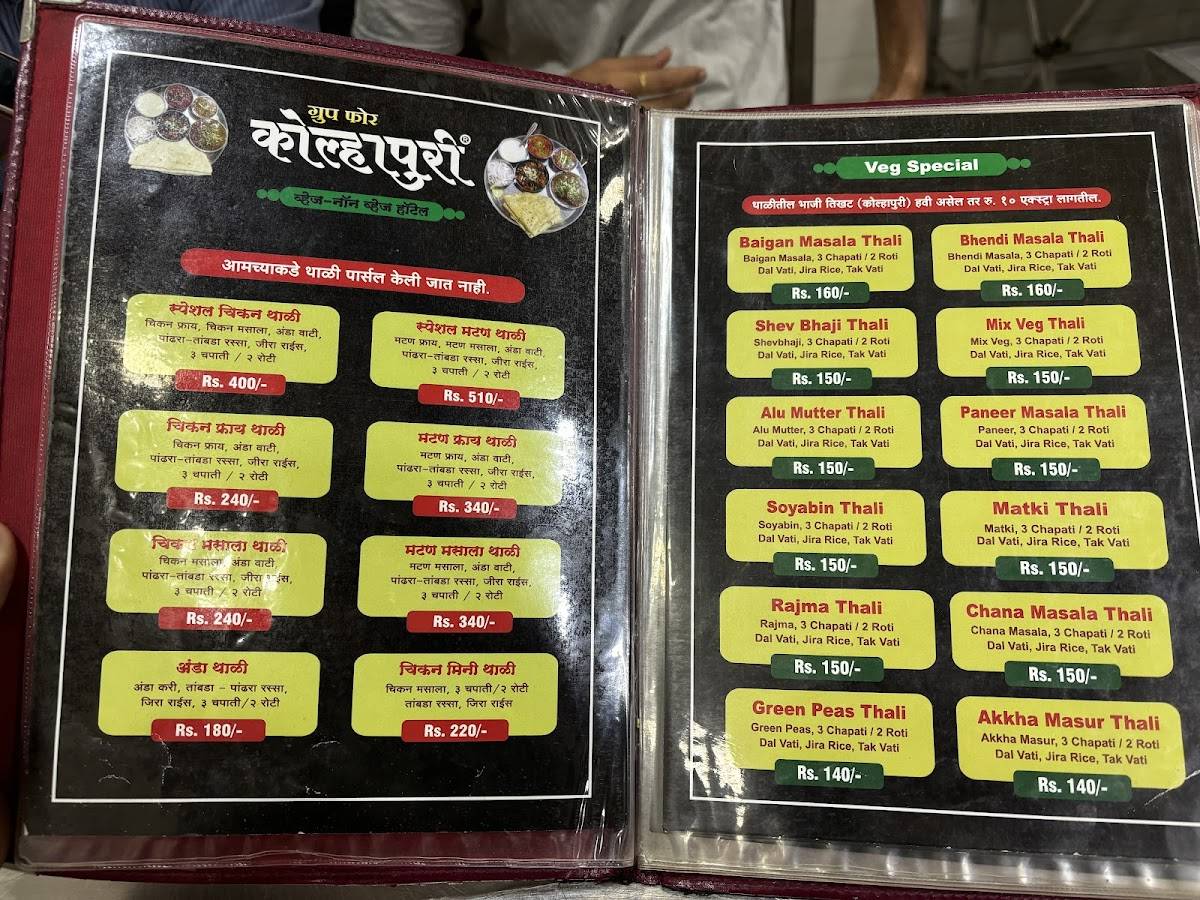 ग्रुप फोर
कोल्हापुरी®
व्हेज-नॉन व्हेज हॉटेल
आमच्याकडे थाळी पार्सल केली जात नाही.
स्पेशल चिकन थाळी
चिकन फ्राय, चिकन मसाला, अंडा वाटी,
पांढरा-तांबडा रस्सा, जीरा राईस,
३ चपाती / २ रोटी
Rs. 400/-
स्पेशल मटण थाळी
मटण फ्राय, मटण मसाला, अंडा वाटी,
पांढरा-तांबडा रस्सा, जीरा राईस,
३ चपाती / २ रोटी
Rs. 510/-
चिकन फ्राय थाळी
चिकन फ्राय, अंडा वाटी,
पांढरा-तांबडा रस्सा, जीरा राईस,
३ चपाती / २ रोटी
Rs. 240/-
मटण फ्राय थाळी
मटण फ्राय, अंडा वाटी,
पांढरा-तांबडा रस्सा, जीरा राईस,
३ चपाती / २ रोटी
Rs. 340/-
चिकन मसाला थाळी
चिकन मसाला, अंडा वाटी,
पांढरा-तांबडा रस्सा, जीरा राईस,
३ चपाती / २ रोटी
Rs. 240/-
मटण मसाला थाळी
मटण मसाला, अंडा वाटी,
पांढरा-तांबडा रस्सा, जीरा राईस,
३ चपाती / २ रोटी
Rs. 340/-
अंडा थाळी
अंडा करी, तांबडा - पांढरा रस्सा,
जिरा राईस, ३ चपाती/२ रोटी
Rs. 180/-
चिकन मिनी थाळी
चिकन मसाला, ३ चपाती/२ रोटी
तांबडा रस्सा, जिरा राईस
Rs. 220/-
Veg Special
थाळीतील भाजी तिखट (कोल्हापुरी) हवी असेल तर रु. १० एक्स्ट्रा लागतील.
Baigan Masala Thali
Baigan Masala, 3 Chapati / 2 Roti
Dal Vati, Jira Rice, Tak Vati
Rs. 160/-
Bhendi Masala Thali
Bhendi Masala, 3 Chapati / 2 Roti
Dal Vati, Jira Rice, Tak Vati
Rs. 160/-
Shev Bhaji Thali
Shevbhaji, 3 Chapati / 2 Roti
Dal Vati, Jira Rice, Tak Vati
Rs. 150/-
Mix Veg Thali
Mix Veg, 3 Chapati / 2 Roti
Dal Vati, Jira Rice, Tak Vati
Rs. 150/-
Alu Mutter Thali
Alu Mutter, 3 Chapati / 2 Roti
Dal Vati, Jira Rice, Tak Vati
Rs. 150/-
Paneer Masala Thali
Paneer, 3 Chapati / 2 Roti
Dal Vati, Jira Rice, Tak Vati
Rs. 150/-
Soyabin Thali
Soyabin, 3 Chapati / 2 Roti
Dal Vati, Jira Rice, Tak Vati
Rs. 150/-
Matki Thali
Matki, 3 Chapati / 2 Roti
Dal Vati, Jira Rice, Tak Vati
Rs. 150/-
Rajma Thali
Rajma, 3 Chapati / 2 Roti
Dal Vati, Jira Rice, Tak Vati
Rs. 150/-
Chana Masala Thali
Chana Masala, 3 Chapati / 2 Roti
Dal Vati, Jira Rice, Tak Vati
Rs. 150/-
Green Peas Thali
Green Peas, 3 Chapati / 2 Roti
Dal Vati, Jira Rice, Tak Vati
Rs. 140/-
Akkha Masur Thali
Akkha Masur, 3 Chapati / 2 Roti
Dal Vati, Jira Rice, Tak Vati
Rs. 140/-